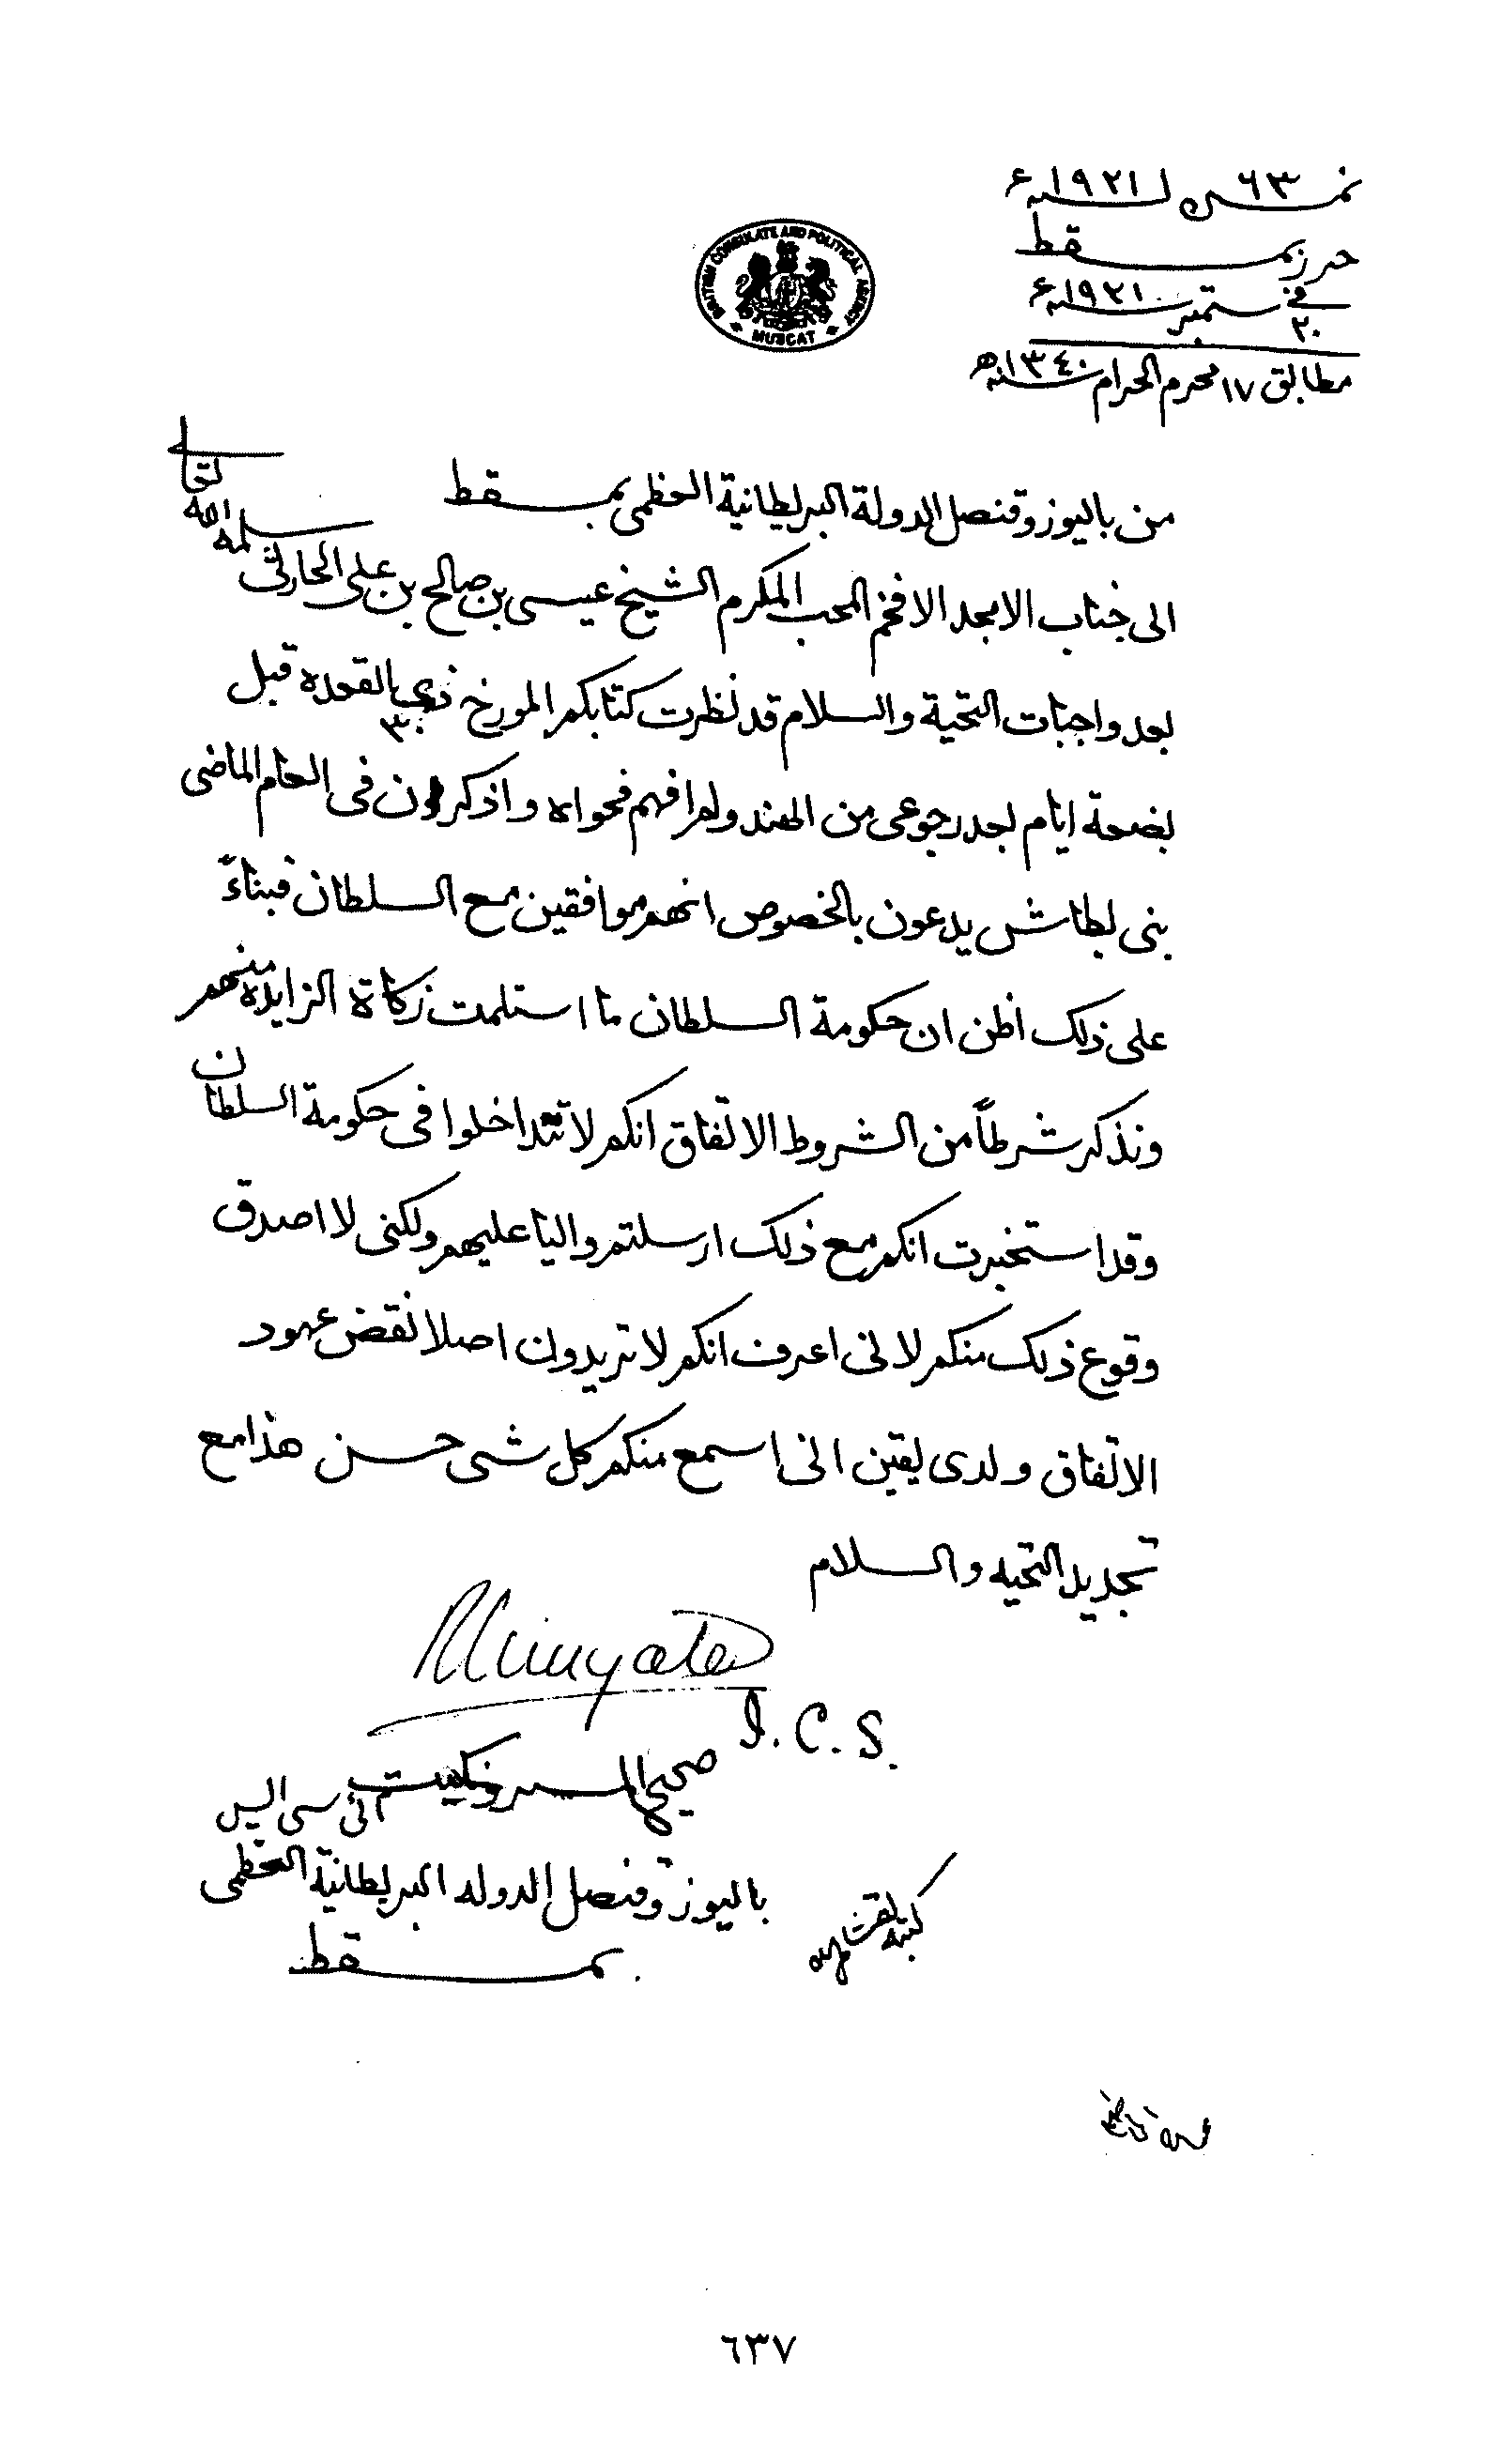 نمرة ٦٣ لسنة ١٩٢١ء
حرر بمسقط
في ٢٠ ستمبر سنة ١٩٢١ء
مطابق ١٧ محرم الحرام سنة ١٣٤٠ھ
BRITISH CONSULATE AND POLITICAL AGENCY
MUSCAT
من باليوز وقنصل الدولة البريطانية العظمى بمسقط
الى جناب الامجد الافخم المحب المكرم الشيخ عيسى بن صالح بن علي الحارثي سلمه الله تعالى
بعد واجبات التحية والسلام قد نظرت كتابكم المورخ ٣٠ ذي القعده قبل
بضعة ايام بعد رجوعي من الهند ولم افهم فحواه واذكر ان في العام الماضى
بنى بطاش يدعون بالخصوص انهم موافقين مع السلطان فبناءً
على ذلك اظن ان حكومة السلطان ما استلمت زكاة الزايده منهم
ونذكر شرطاً من الشروط الاتفاق انكم لا تتداخلوا في حكومة السلطان
وقد استخبرت انكم مع ذلك ارسلتم واليا عليهم ولكنى لا اصدق
وقوع ذلك منكم لانى اعرف انكم لا تريدون اصلا نقض عهود
الاتفاق ولدى يقين انى اسمع منكم كل شى حسن هذا مع
تجديد التحيه والسلام
Wingate
I.C.S.
صحيح المستر ونكيت آئى سى ايس
باليوز وقنصل الدوله البريطانية العظمى
بمسقط
كتبه
٦٣٧